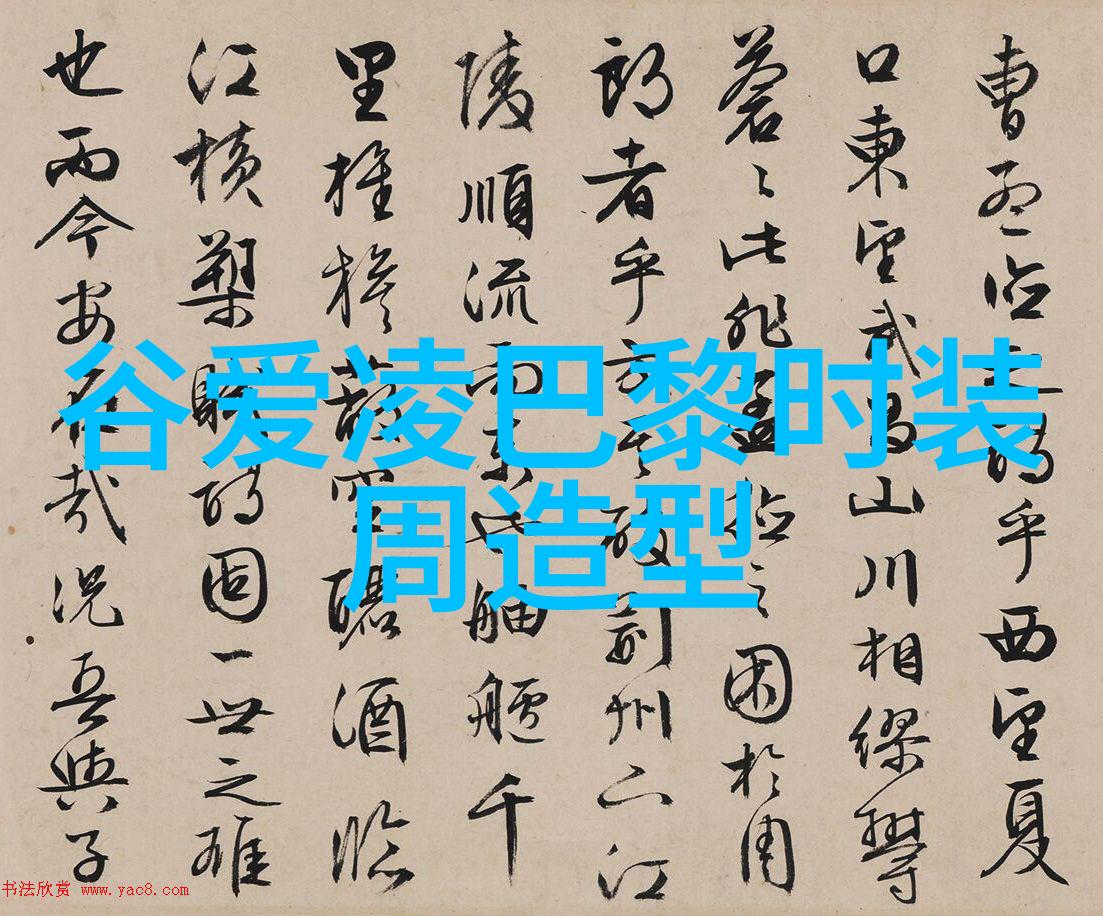 谷爱凌巴黎时装
周造型
曹孟德之詩乎西望夏
口東望武昌山川相繆鬱
蒼〻此非孟德之困於周
郎者乎方其破荊州下江
陵順流而東也舳艫千
里旌旗蔽空釃酒臨
江橫槊賦詩固一世之雄
也而今安在哉況吾與子
书法欣赏 www.yac8.com